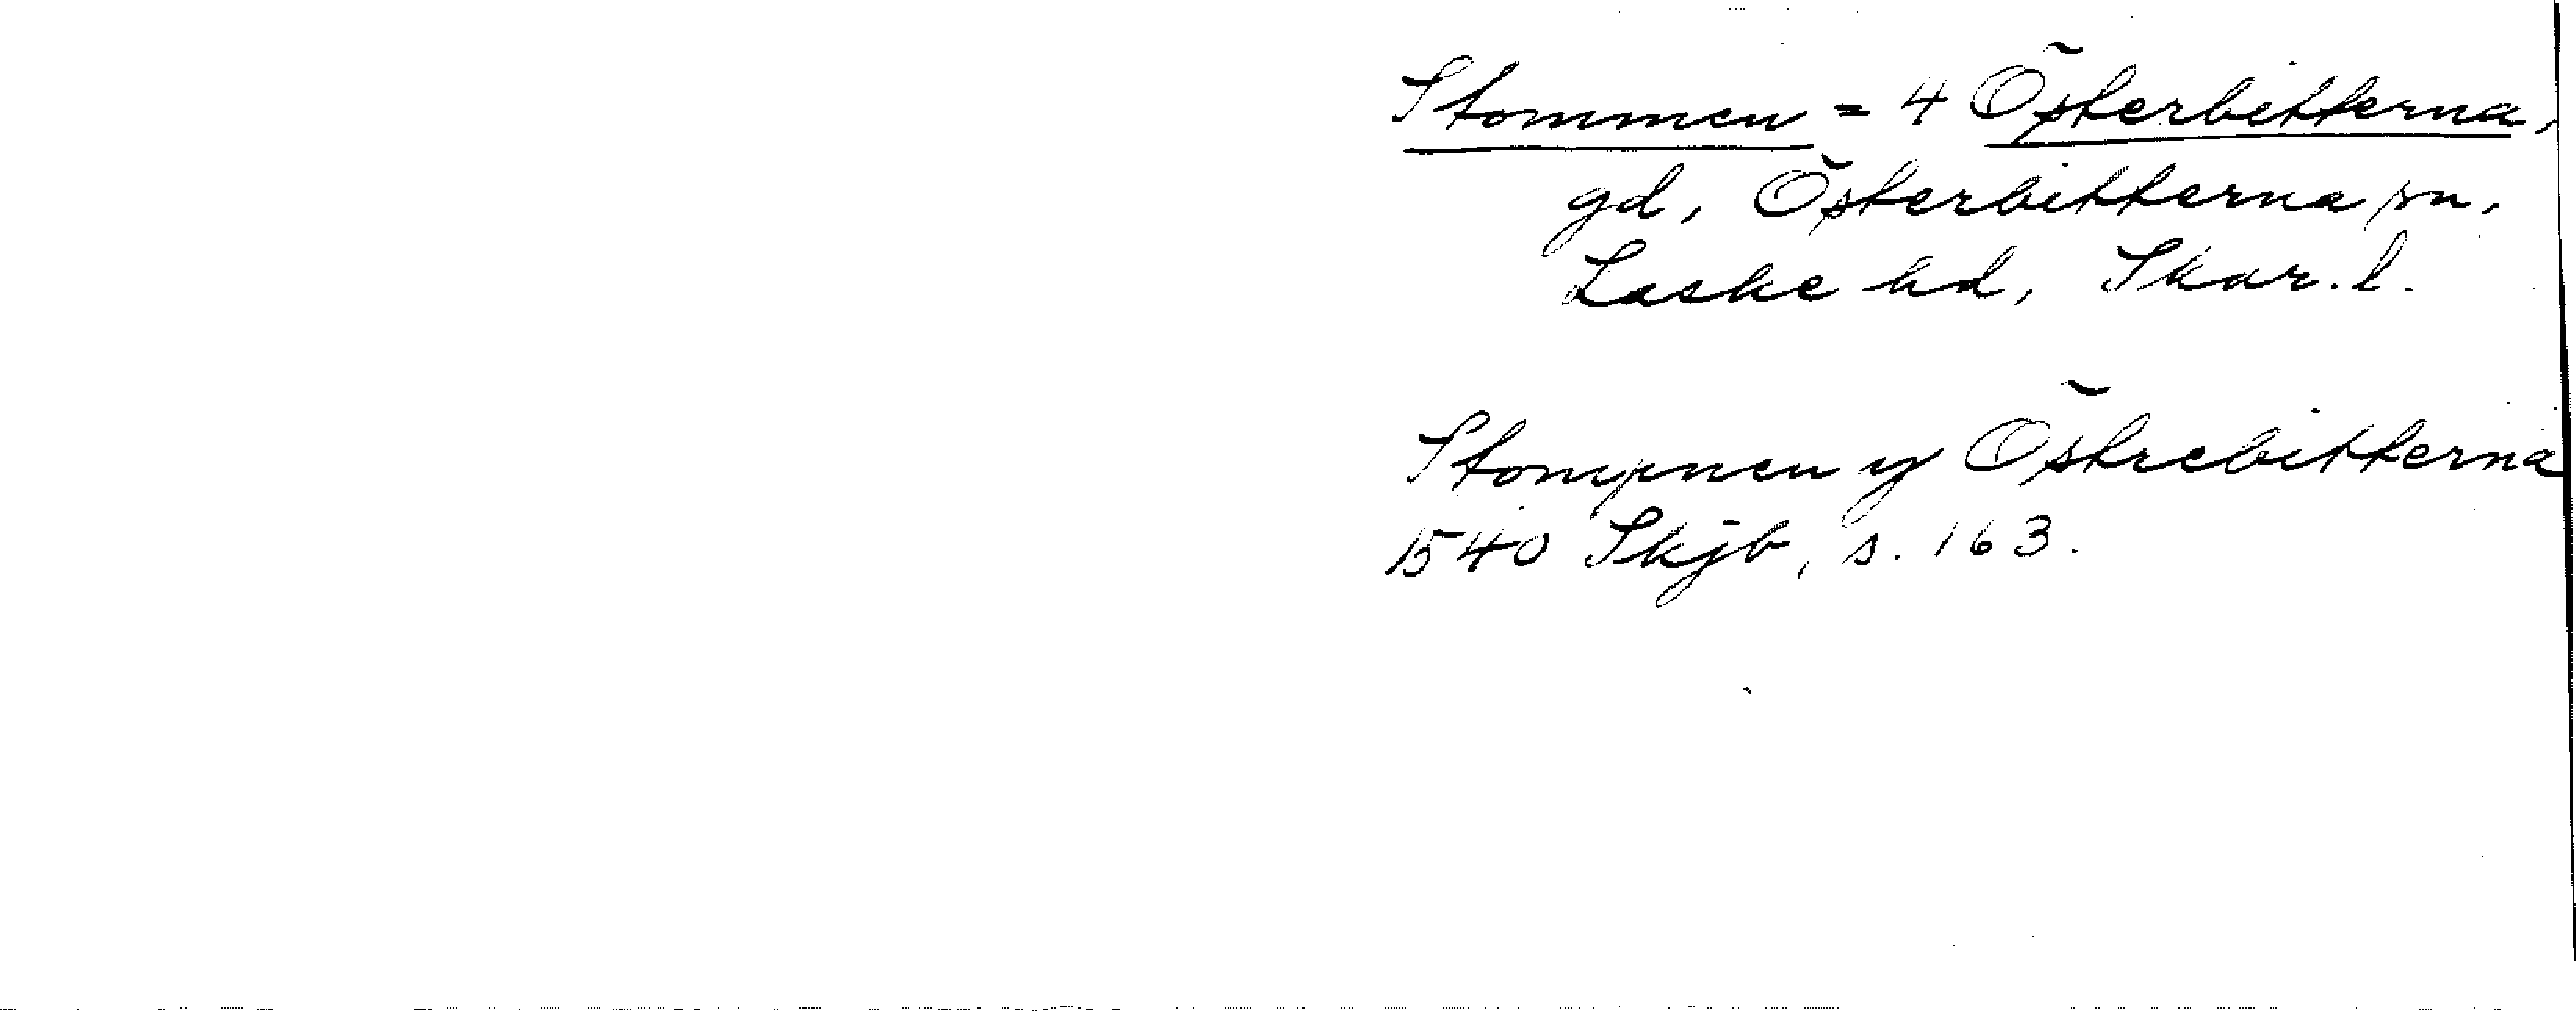 Stommen = 4 Österbitterna,
gd, Österbitterna sn,
Laske hd, Skar. l.
Stompnen y Östrebitterna
1540 Skjb, s. 163.